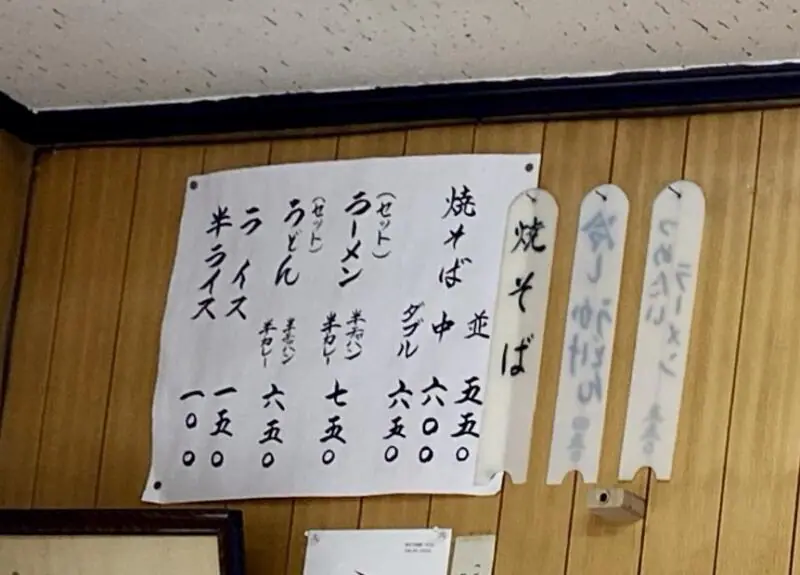 つめたい
ラーメン
冷しかけうどん
焼そば
焼そば 並 五五〇
中 六〇〇
ダブル 六五〇
(セット)
ラーメン 半チャハン
半カレー 七五〇
(セット)
うどん 半チャハン
半カレー 六五〇
ライス 一五〇
半ライス 一〇〇